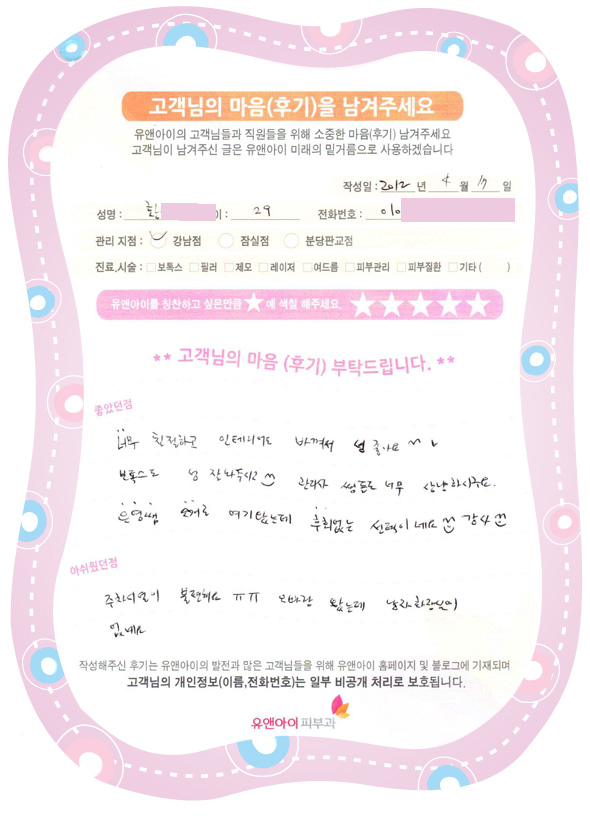 고객님의 마음(후기)을 남겨주세요
유앤아이의 고객님들과 직원들을 위해 소중한 마음(후기) 남겨주세요
고객님이 남겨주신 글은 유앤아이 미래의 밑거름으로 사용하겠습니다
작성일 : 2012 년 4 월 17 일
성명 : 황 이 : 29 전화번호 : 010
관리 지점 : 강남점 잠실점 분당판교점
진료,시술 : 보톡스 필러 제모 레이저 여드름 피부관리 피부질환 기타 ( )
유앤아이를 칭찬하고 싶은만큼 ★ 에 색칠 해주세요. ★★★★★
** 고객님의 마음 (후기) 부탁드립니다. **
좋았던점
너무 친절하고 인테리어도 바껴서 넘 좋아요 ^^
보톡스도 넘 잘 놔주시고 관리사 쌤들도 너무 상냥하시구요.
은영쌤 여기 왔는데 후회없는 선택이네요 감사
아쉬웠던점
주차시설이 불편해요 ㅠㅠ 왔는데
없네요
작성해주신 후기는 유앤아이의 발전과 많은 고객님들을 위해 유앤아이 홈페이지 및 블로그에 기재되며
고객님의 개인정보(이름,전화번호)는 일부 비공개 처리로 보호됩니다.
유앤아이피부과